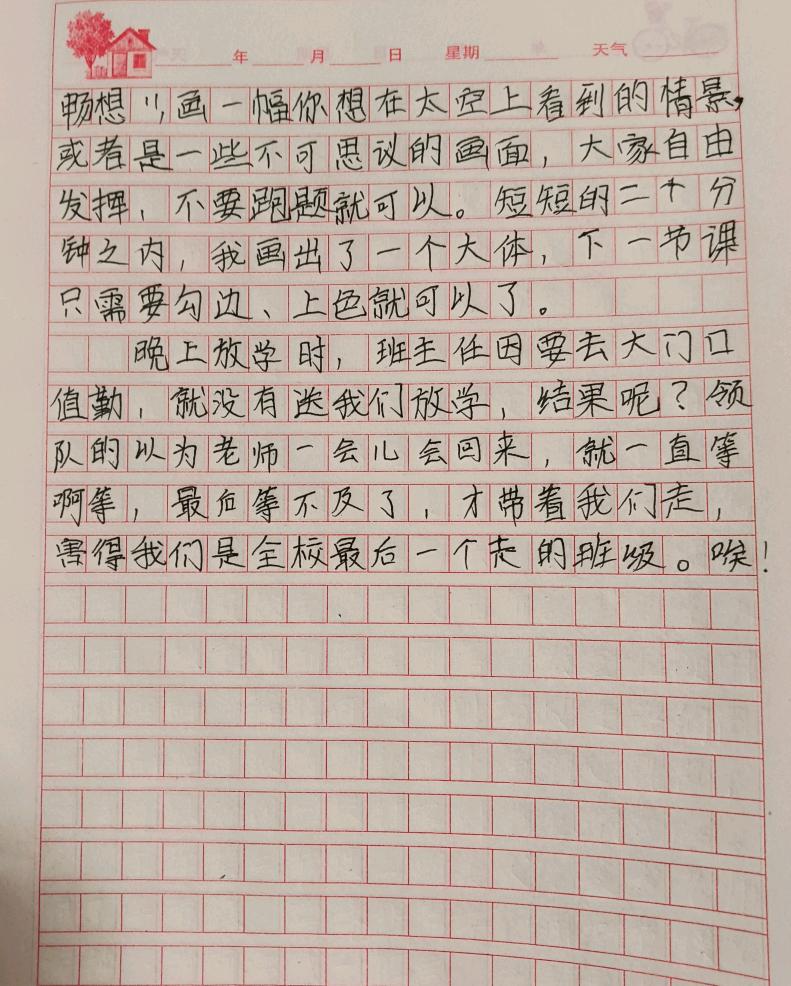 年 月 日 星期 天气
畅想”，画一幅你想在太空上看到的情景，
或者是一些不可思议的画面，大家自由
发挥，不要跑题就可以。短短的二十分
钟之内，我画出了一个大体，下一节课
只需要勾边、上色就可以了。
晚上放学时，班主任因要去大门口
值勤，就没有送我们放学，结果呢？领
队的以为老师一会儿会回来，就一直等
啊等，最后等不及了，才带着我们走，
害得我们是全校最后一个走的班级。唉！